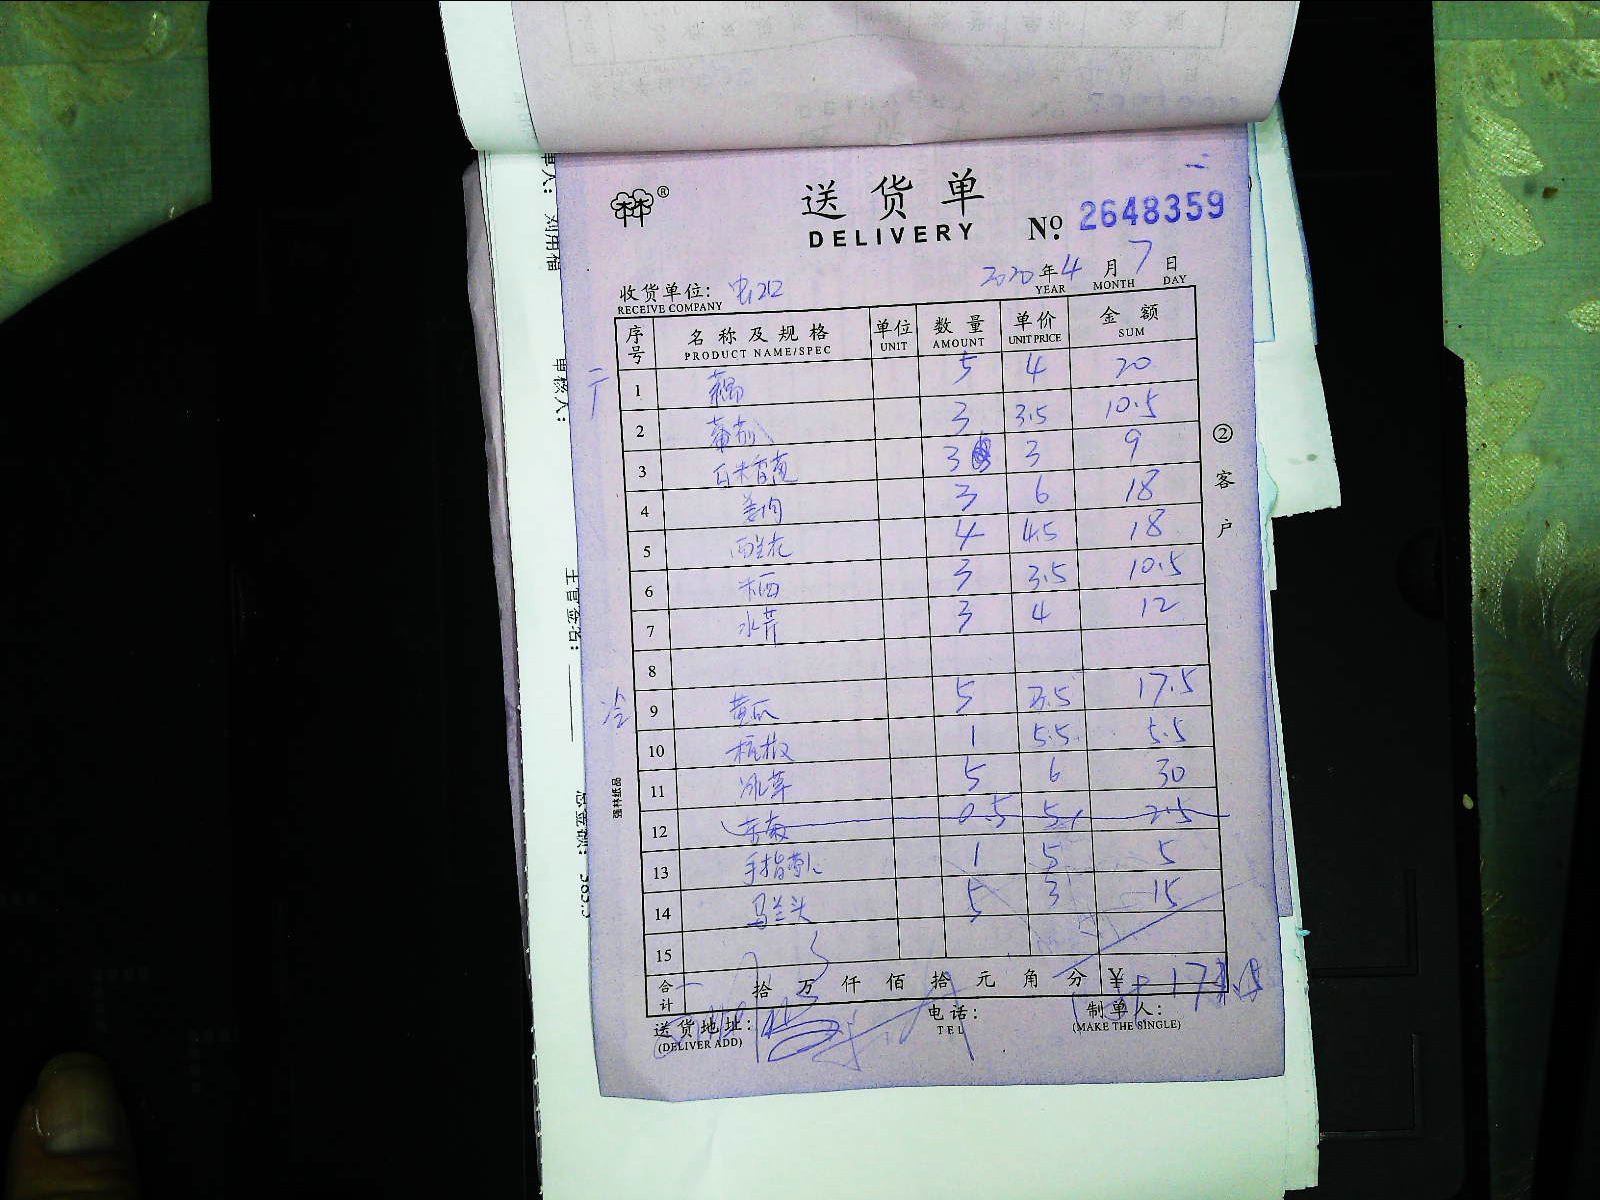 送货单
DELIVERY No. 2648359
2020年4月7日
YEAR MONTH DAY
收货单位:
RECEIVE COMPANY
序号 名称及规格 单位 数量 单价 金额
PRODUCT NAME/SPEC UNIT AMOUNT UNIT PRICE SUM
1 5 4 20
2 3 3.5 10.5
3 白米香菇 3 3 9
4 姜肉 3 6 18
5 西兰花 4 4.5 18
6 3 3.5 10.5
7 水芹 3 4 12
8
冷 9 黄瓜 5 3.5 17.5
10 杭椒 1 5.5 5.5
11 冰草 5 6 30
12 0.5 5 2.5
13 1 5 5
14 马兰头 5 3 15
15
合计 拾 万 仟 佰 拾 元 角 分 ¥
送货地址: 电话: 制单人:
(DELIVER ADD) TEL (MAKE THE SINGLE)
②客户
强林纸品
单人: 刘用福
审核人:
主管签名:
总金额: